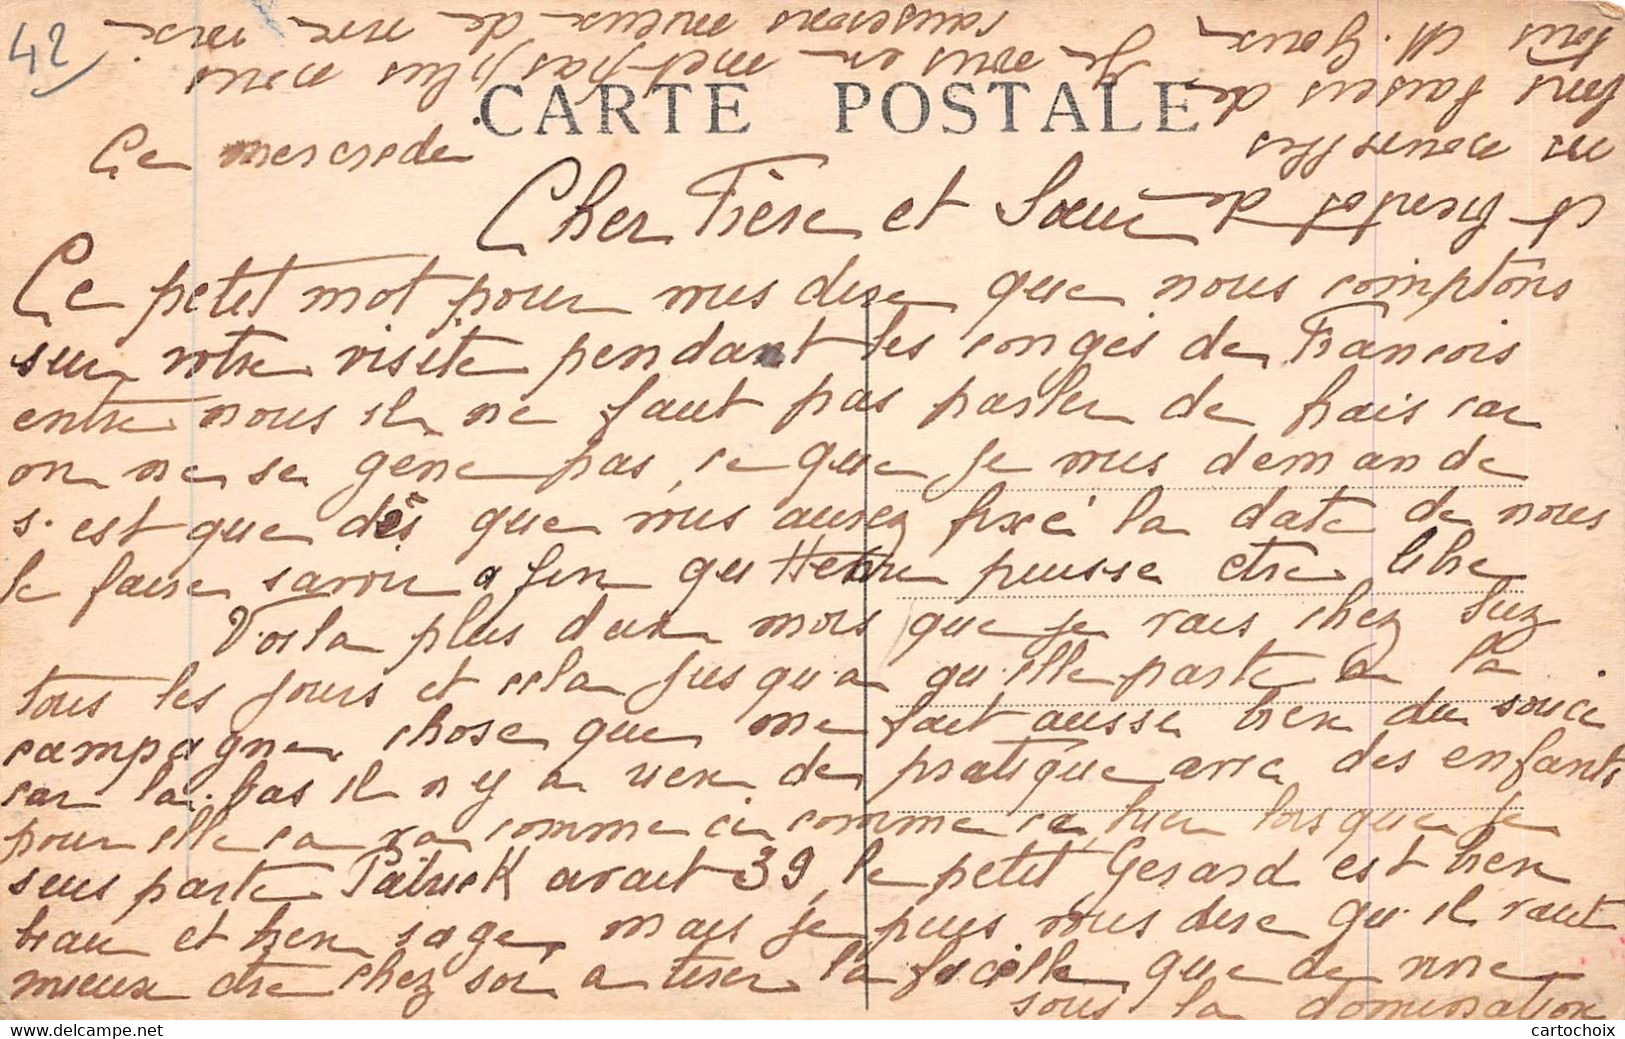 42
CARTE POSTALE
Ce mercrede
Cher Frère et Sœur
Ce petit mot pour vous dire que nous comptons
sur votre visite pendant les congés de Francois
entre nous il ne faut pas parler de frais car
on ne se gène pas, ce que je vous demande
s'est que dès que vous aurez fixé la date de nous
le faire savoir afin qu Henri puisse etre libre
Voila plus deux mois que je vais chez Suz
tous les jours et cela jusqu'a qu'elle parte a la
campagne chose que me fait aussi bien du souci
car la bas il n y a rien de pratique avec des enfants
pour elle ca va comme ci comme ca, hier lorsque je
suis parte Patrick avait 39, le petit Gerard est bien
beau et bien sage, mais je puis vous dire qu'il vaut
mieux etre chez soi a tirer la ficelle que de vivre
sous la domination
tous M. Gous. Je vous en met pas plus nous
causerons mieux de vive voix.
et bientot de
vos nouvelles
bons baisers de
cartochoix